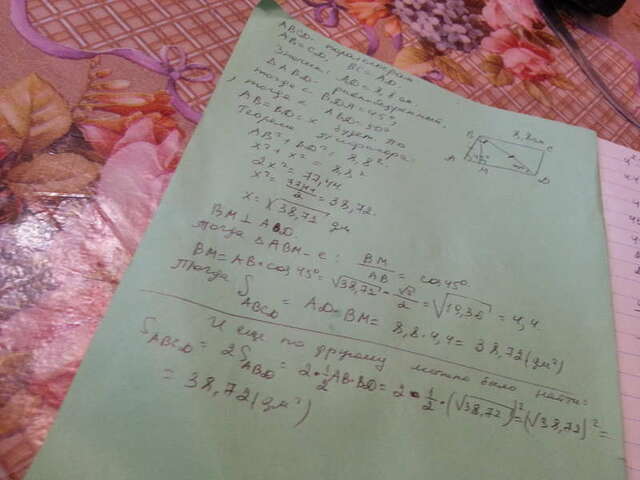 ABCD - параллеграм
AB = CD, BC = AD
Значит, AD = 8,8 см.
Δ ABD - равнобедренный,
тогда ∠ BDA = 45°
, тогда ∠ ABD = 90°
AB = BD = x будет по
Теореме Пифагора:
AB² + BD² = 8,8²
x² + x² = 8,8²
2x² = 77,44
x² = 77,44/2 = 38,72.
x = √38,72 дм
BM ⊥ ABD
Тогда Δ ABM - е: BM/AB = cos 45°
BM = AB • cos 45° = √38,72 • √2/2 = √19,36 = 4,4
Тогда S ABCD = AD • BM = 8,8 • 4,4 = 38,72 (дм²)
И еще по другому можно было найти:
S ABCD = 2 S ABD = 2 • 1/2 AB • BD = 2 • 1/2 • (√38,72)² = (√38,72)² =
= 38,72 (дм²)
B 8,8см C
A 45° M D